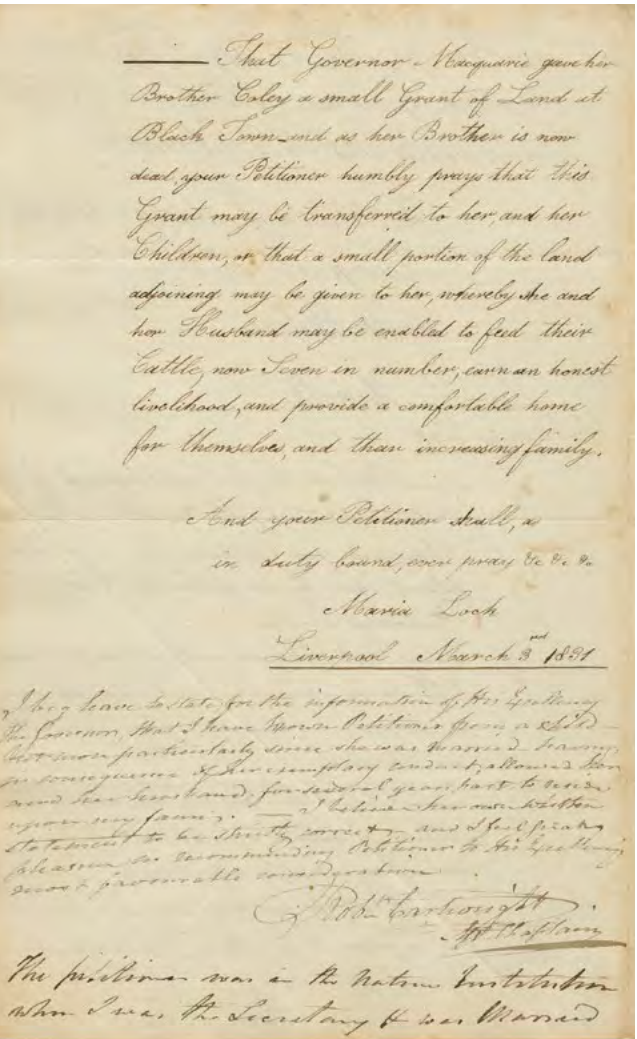 That Governor Macquarie gave her
Brother Coley a small Grant of Land at
Black Town and as her Brother is now
dead, your Petitioner humbly prays that this
Grant may be transferred to her, and her
Children, or that a small portion of the land
adjoining may be given to her, whereby she and
her Husband may be enabled to feed their
Cattle, now Seven in number, earn an honest
livelihood, and provide a comfortable home
for themselves, and their increasing family.
And your Petitioner shall, as
in duty bound, ever pray &c. &c. &c.
Maria Lock
Liverpool March 3rd 1831
I beg leave to state, for the information of His Excellency
the Governor, that I have known Petitioner from a child
but more particularly since she was married having
in consequence of her exemplary conduct, allowed her
and her husband, for several years past to reside
upon my farm. I believe her own written
statement to be strictly correct and I feel great
pleasure in recommending Petitioner to His Excellency's
most favourable consideration
Robt Cartwright
Chaplain
The petitioner was in the Native Institution
when I was the Secretary & was Married